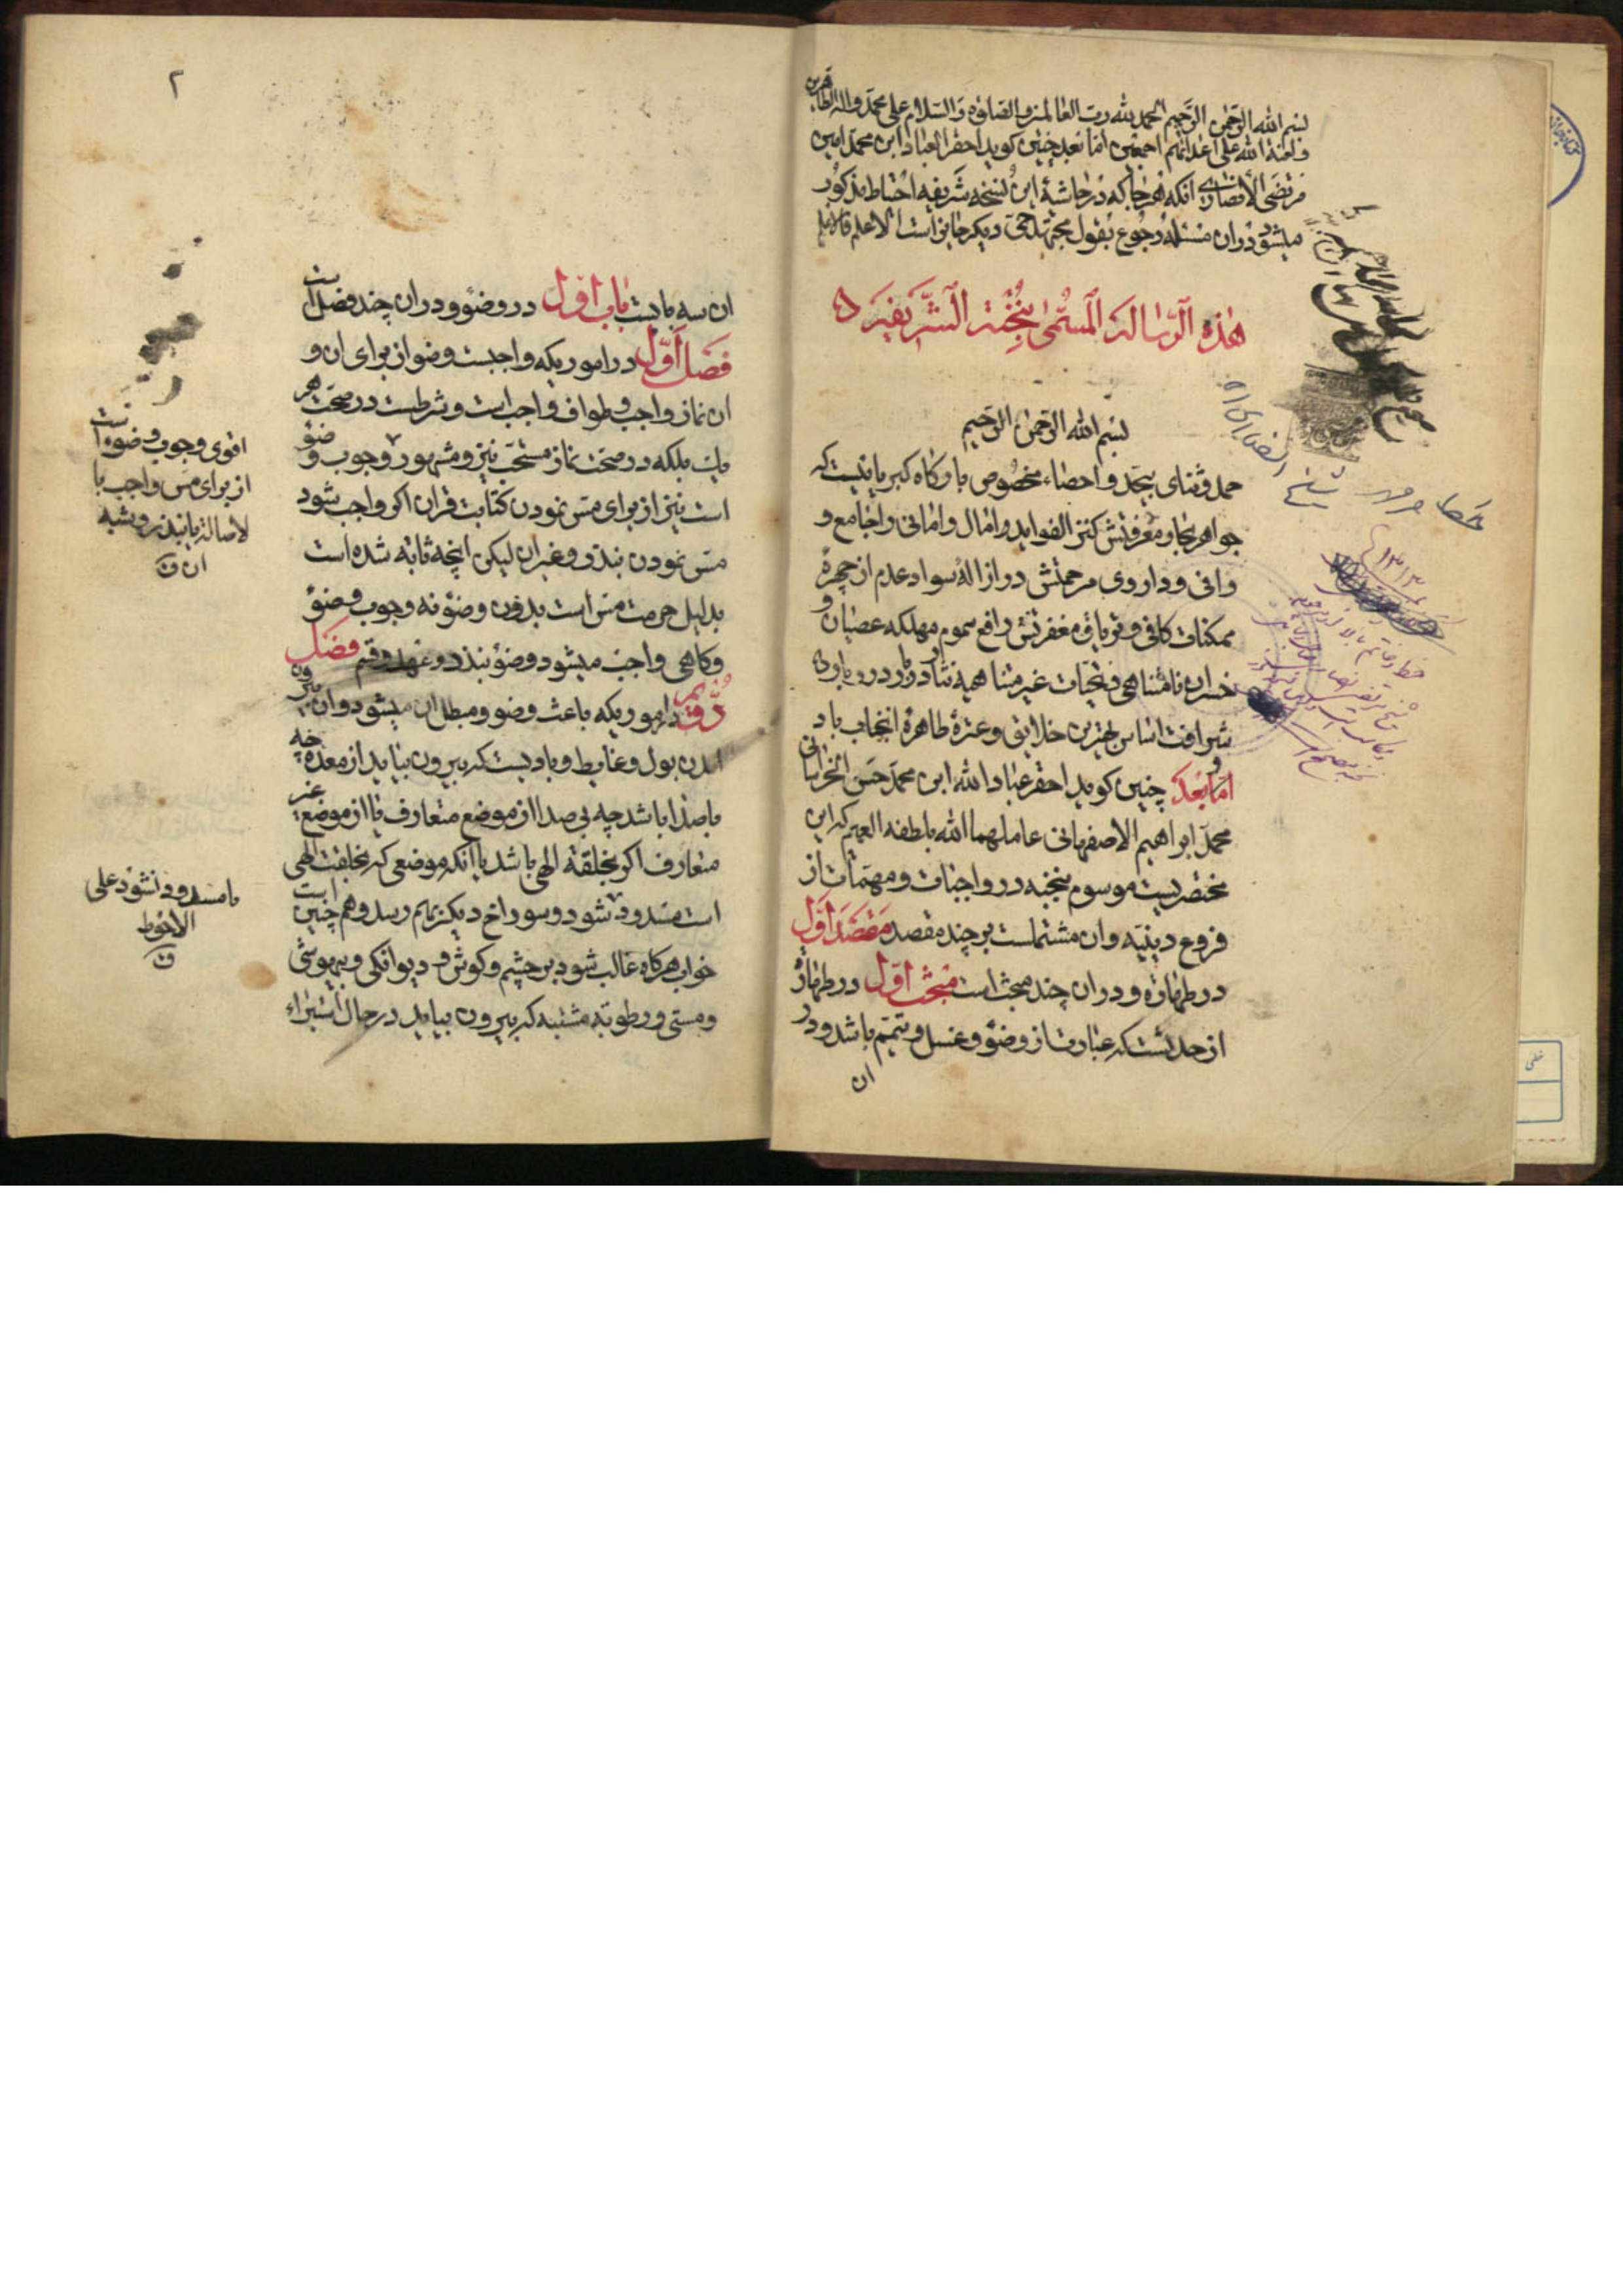 بسم الله الرحمن الرحیم الحمد لله رب العالمین و الصلوة و السلام علی محمد و اله الطاهرین
و لعنة الله علی اعدائهم اجمعین اما بعد چنین کوید احقر العباد ابن محمد امین
مرتضی الانصاری انکه هر جا که در حاشیهٔ این نسخه شریفه احتیاط مذکور
میشود در ان مسئله رجوع بقول مجتهد حی دیکر جایز است الاعلم فالاعلم
هذه الرسالة المسمی بنخبة الشریفیة
بسم الله الرحمن الرحیم
حمد و ثنای بیحد و احصاء مخصوص بارکاه کبریائیست که
جواهر بحار معرفتش کنز الفواید و امال و امانی و اجامع و
وافی و داروی مرحمتش در ازالهٔ سواد عدم از چهرهٔ
ممکنات کافی و تریاق مغفرتش رافع سموم مهلکه عصیان و
خسران نامتناهی و تحیات غیر متناهیه نثار
شرافت اساس بهترین خلایق و عترهٔ طاهرهٔ انجناب باد
اما بعد چنین کوید احقر عباد الله ابن محمد حسن الخراسانی
محمد ابراهیم الاصفهانی عاملهما الله بلطفه العمیم که این
مختصریست موسوم بنخبه در واجبات و مهمات از
فروع دینیه و ان مشتملست بر چند مقصد مقصد اول
در طهارة و در ان چند مبحث است مبحث اول در طهارة
از حدثست که عبارت از وضو و غسل و تیمم باشد و در
ان
۲
ان سه بابست باب اول در وضو و در ان چند فصل است
فصل اول در اموریکه واجبست وضو از برای ان و
ان نماز واجب و طواف واجب است و شرطست در صحت هر
یك بلکه در صحت نماز مستحب نیز و مشهور وجوب وضو
است نیز از برای مس نمودن کتابت قران اکر واجب شود
مس نمودن بنذر و غیر ان لیکن انچه ثابة شده است
بدلیل حرمت مس است بدون وضو نه وجوب وضو
و کاهی واجب میشود وضو بنذر و عهد و قسم فصل
دویم در اموریکه باعث وضو و مبطل ان میشود و ان بیرون
امدن بول و غایط و بادیست که بیرون بیاید از معده چه
با صدا باشد چه بی صدا از موضع متعارف یا از موضع غیر
متعارف اکر بخلقة الهی باشد یا انکه موضعی که بخلقت الهی
است مسدود شود و سوراخ دیکر بهم رسد و هم چنین است
خواب هرکاه غالب شود بر چشم و کوش و دیوانکی و بیهوشی
و مستی و رطوبة مشتبه که بیرون بیاید در حال استبراء
اقوی وجوب وضوء است
از برای مس واجب یا
لاصالة یا بنذر و شبه
ان ن
یا مسدود نشود علی
الاحوط
ن
خط و مهر
شیخ انصاری